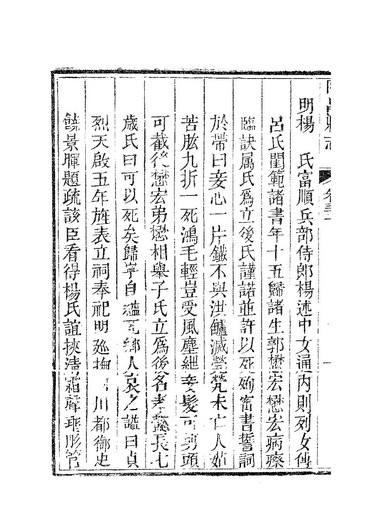 明楊 氏富順兵部侍郎楊述中女通內則列女傳
呂氏閨範諸書年十五歸諸生郭懋宏懋宏病瘵
臨訣屬氏爲立後氏謹諾並許以死殉密書誓詞
於帶曰妾心一片鐵不與洪鑪滅煢煢未亡人茹
苦肱九折一死鴻毛輕豈受風塵紲妾髮可剪頭
可截後懋宏弟懋相舉子氏立爲後名孝懿長七
歲氏曰可以死矣歸寧自縊 鄉人哀之諡曰貞
烈天啟五年旌表立祠奉祀明巡撫 川都御史
饒景暉題疏該臣看得楊氏誼挾淸霜聲垂彤管